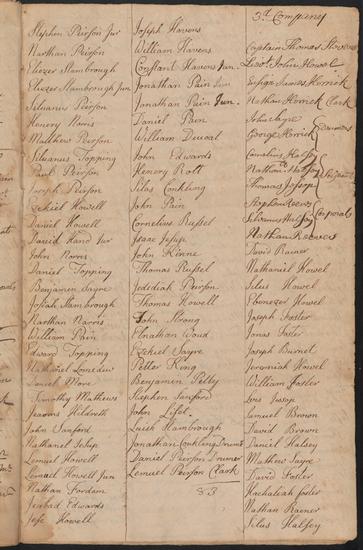 Stephen Peirson Jur
Narthan Peirson
Eliezer Stambrough
Eliezer Stambrough Jun
Silvanus Peirson
Henery Norris
Matthew Peirson
Silvanus Topping
Paul Peirson
Joseph Peirson
Ezekiel Howell
Daniel Howell
David Hand Jur
John Norris
Daniel Topping
Benjamin Sayre
Josiah Stambrough
Narthan Narris
William Pain
Edward Topping
Nathaniel
Daniel More
Timothy Mathews
Jearms Hildreth
John Sanford
Nathaniel Jesup
Lemuel Howell
Lemuel Howell Jun
Nathan Fordam
Jerebad Edwards
Jese Howell
Joseph Havens
William Havens
Constant Havens Jun.
Jonathan Pain Sen
Jonathan Pain Jun.
Daniel Pain
William Duval
John Edwards
Henery Rott
Silas Conkling
John Pain
Cornelius Russel
Isaac Jesup
John Kinne
Thomas Russel
Jedediah Peirson
Thomas Howell
John Strong
Elnathan
Ezekiel Sayre
Petter King
Benjamin Petty
Stephen Sanford
John
Stambrough
Jonathan Conkling Drumr
Daniel Peirson Drumer
Lemuel Peirson Clark
83
3d Company
Captain Thomas Stevens
Leut. John Howel
Insign James Herrick
Nathan Herrick Clark
John Sayre
George Herrick
Cornelius Halsey
Nathan Halsey
Thomas Jessop
Serjants
Stephen Reevs
Silvanus Halsey
Corporal
Nathan Reeves
David Rainer
Nathaniel Howel
Silus Howel
Ebenezer Howel
Joseph Foster
Jonas Foster
Joseph Burnet
Jeremiah Howel
William Foster
Jessup
Samuel Brown
David Brown
Daniel Halsey
Mathew Sayre
David Foster
Hachaliah foster
Nathan Rainer
Silus Halsey